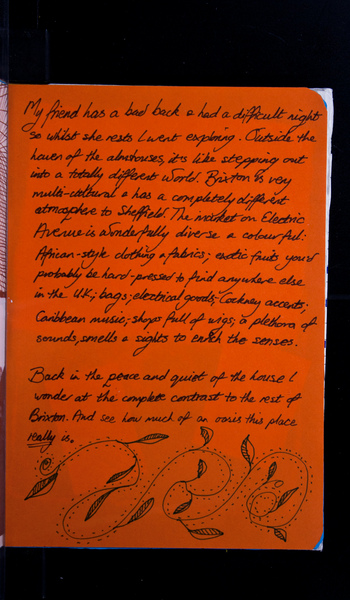 My friend has a bad back & had a difficult night
so whilst she rests I went exploring. Outside the
haven of the almshouses, it's like stepping out
into a totally different world. Brixton is very
multi-cultural & has a completely different
atmosphere to Sheffield. The market on Electric
Avenue is wonderfully diverse & colourful:
African-style clothing & fabrics; exotic fruits you'd
probably be hard-pressed to find anywhere else
in the UK; bags; electrical goods; Cockney accents;
Caribbean music; shops full of wigs; a plethora of
sounds, smells & sights to enrich the senses.
Back in the peace and quiet of the house I
wonder at the complete contrast to the rest of
Brixton. And see how much of an oasis this place
really is.